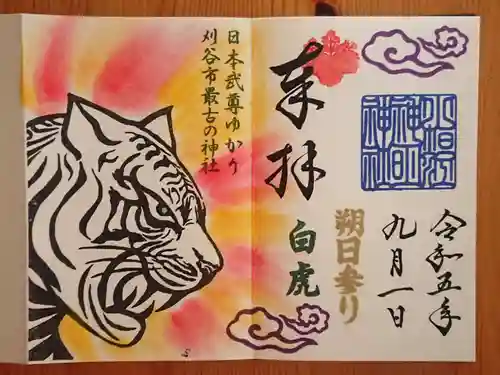 令和五年
九月一日
朔日参り
奉拝
白虎
日本武尊ゆかり
刈谷市最古の神社